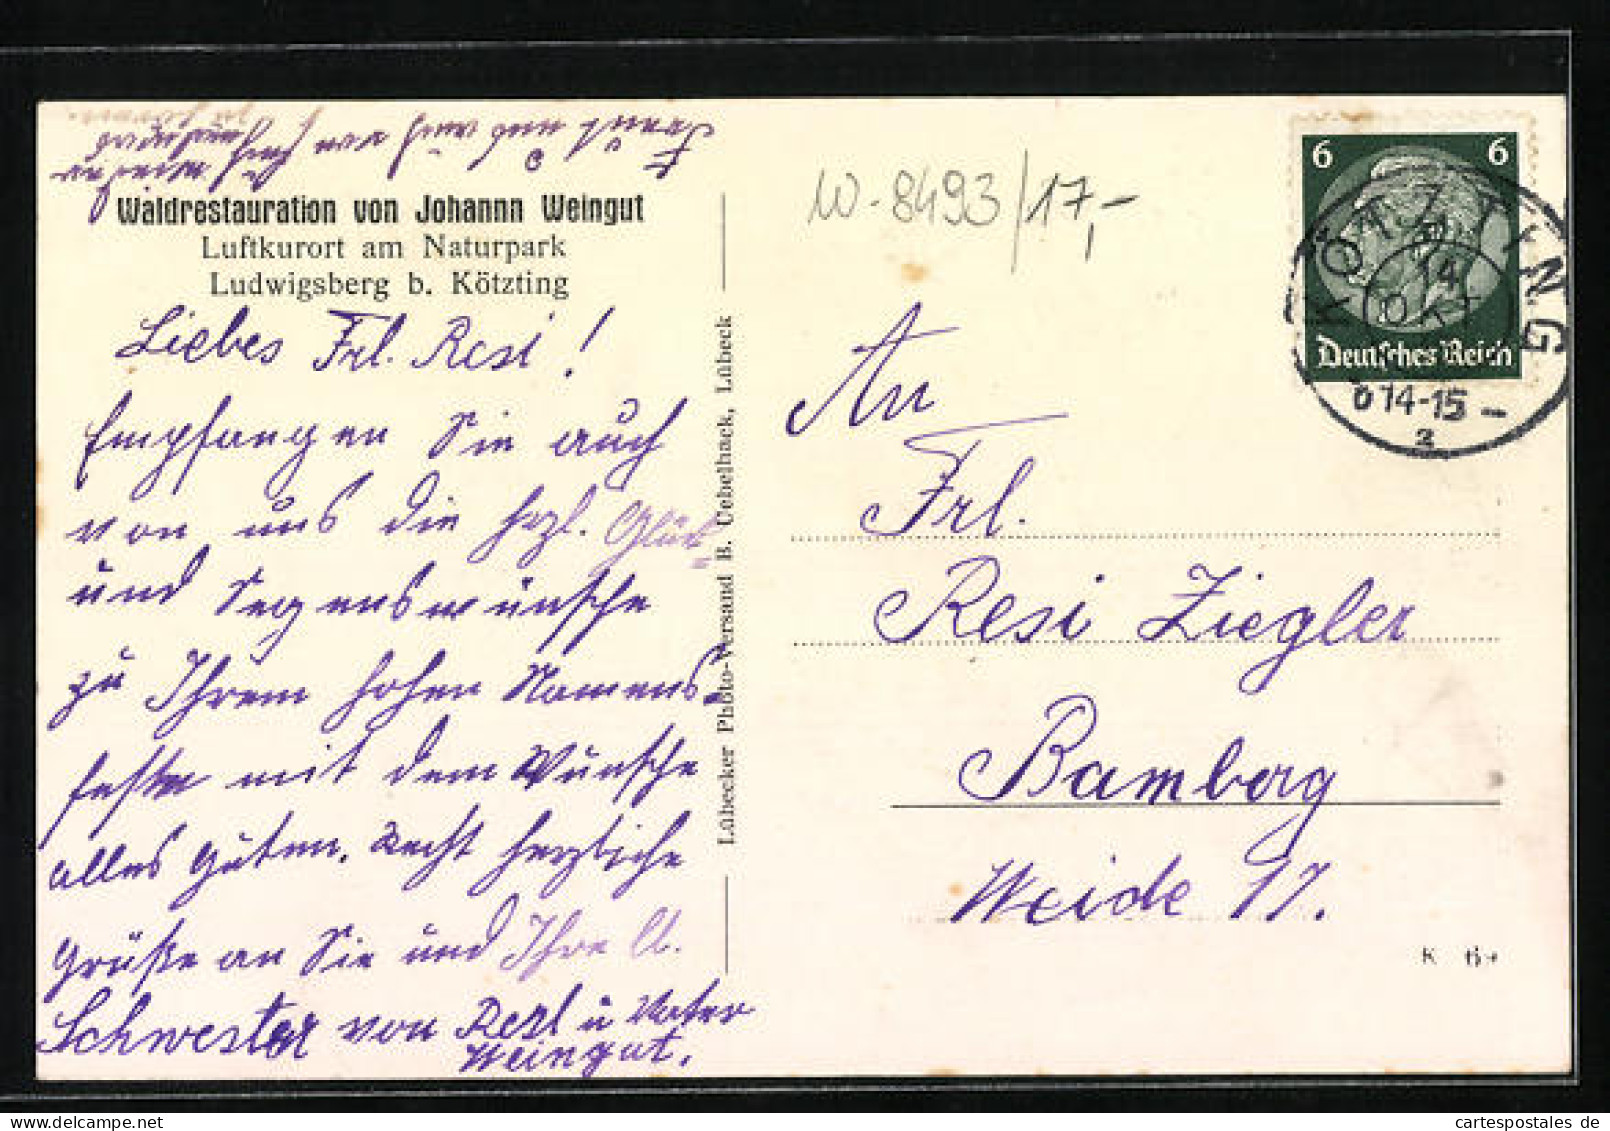 Waldrestauration von Johannn Weingut
Luftkurort am Naturpark
Ludwigsberg b. Kötzting
Liebes Frl. Resi!
Empfangen Sie auch
von uns die hrzl. Glück-
und Segenswünsche
zu Ihrem hohen Namens-
feste mit dem Wunsche
alles Guten. Recht herzliche
Grüße an Sie und Ihre lb.
Schwester von Resl u Vater
Weingut.
Lübecker Photo-Versand B. Uebelhack, Lübeck
W-8493/17,-
6 6
Deutsches Reich
KÖTZTING
14
OKT
14-15
a
An
Frl.
Resi Ziegler
Bamberg
Weide 17.
K
cartespostales de